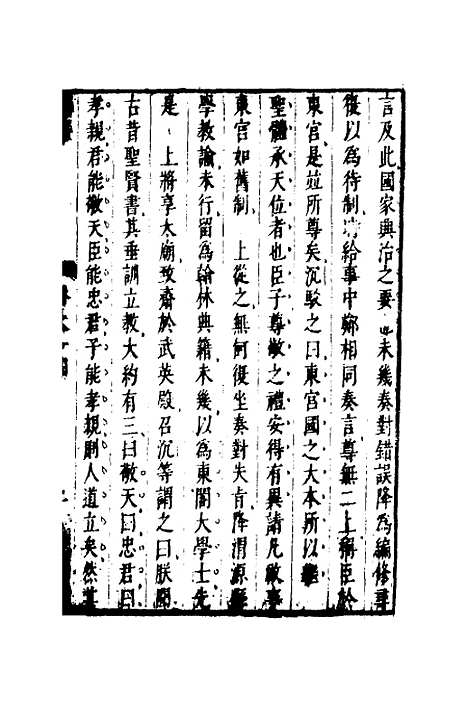 言及此國家興治之要也未幾奏對錯誤降為編修尋
復以為待制時給事中鄭相同奏言尊無二上稱臣於
東宮是竝所尊矣沉駮之曰東宮國之大本所以繼
聖體承天位者也臣子尊敬之禮安得有異諸凡啟事
東宮如舊制　上從之無何復坐奏對失旨降渭源縣
學教諭未行留為翰林典籍未幾以為東閣大學士先
是、上將享太廟致齋於武英殿召沉等謂之曰朕聞
古昔聖賢書其垂訓立教大約有三曰敬天曰忠君曰
孝親君能敬天臣能忠君子能孝親則人道立矣然其